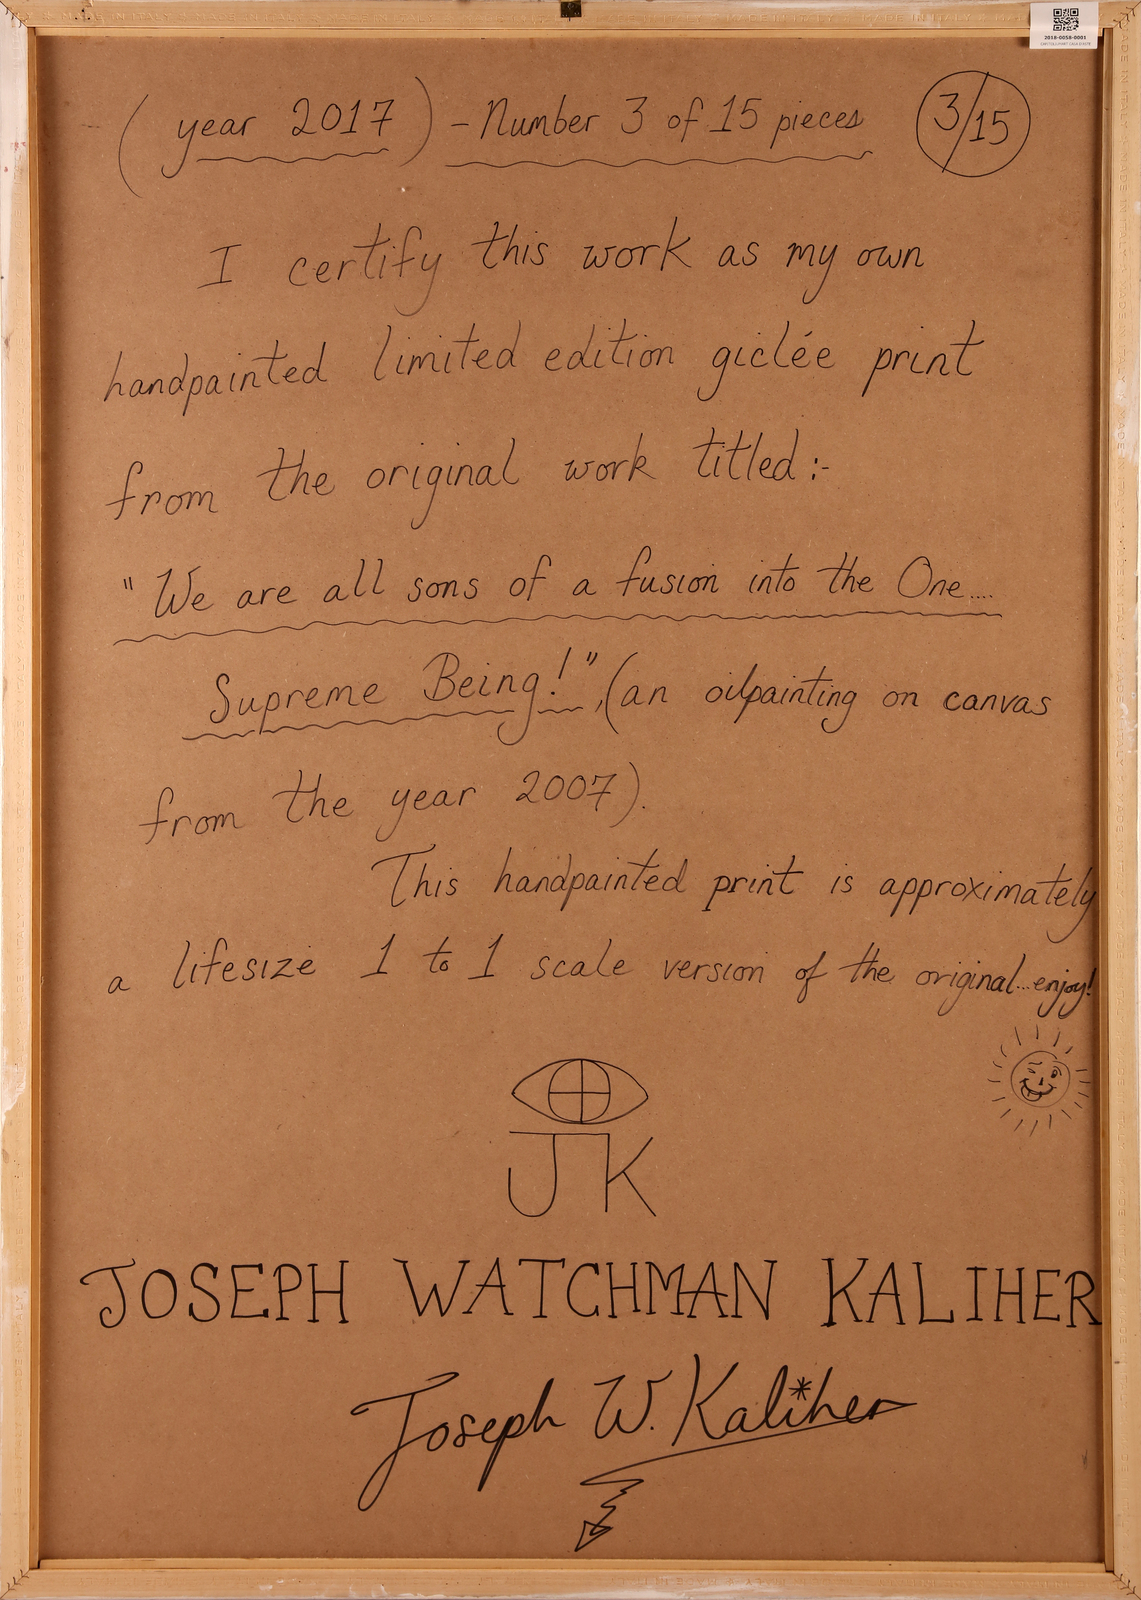 2018-0058-0001
(year 2017) - Number 3 of 15 pieces 3/15
I certify this work as my own
handpainted limited edition giclée print
from the original work titled :-
"We are all sons of a fusion into the One....
Supreme Being!", (an oilpainting on canvas
from the year 2007).
This handpainted print is approximately
a lifesize 1 to 1 scale version of the original...enjoy!
JK
JOSEPH WATCHMAN KALIHER
Joseph W. Kaliher